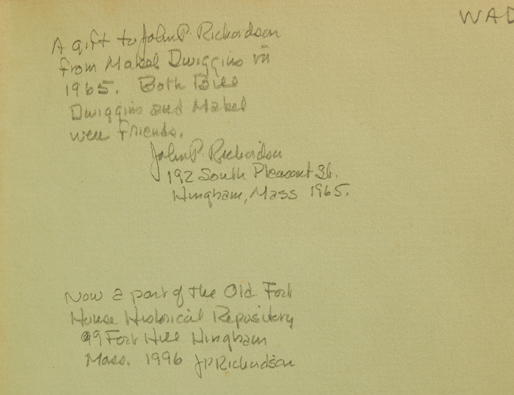 WAD
A gift to John P. Richardson
from Mabel Dwiggins in
1965. Both Bill
Dwiggins and Mabel
were friends.
John P. Richardson
192 South Pleasant St.
Hingham, Mass 1965.
Now a part of the Old Fort
House Historical Repository
99 Fort Hill Hingham
Mass. 1996 JP Richardson